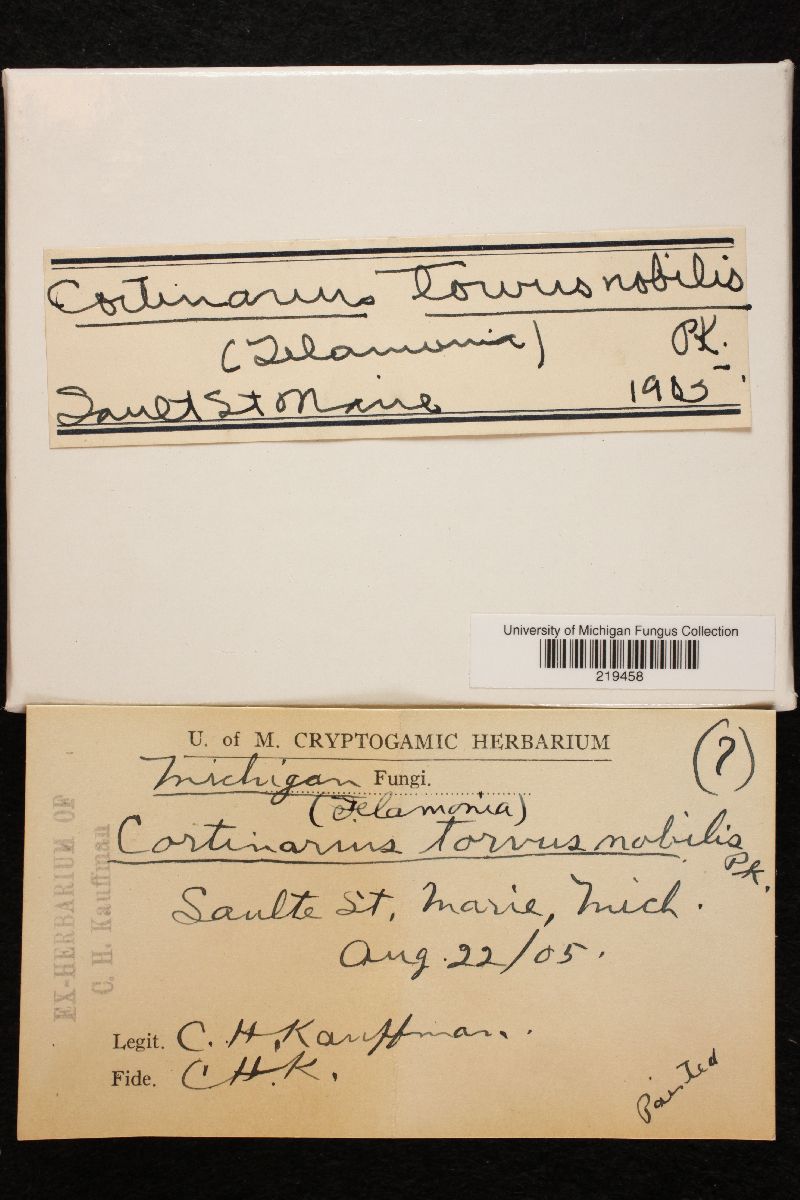 Cortinarius torvus nobilis
(Telamonia) Pk.
Sault St Marie 1905.
University of Michigan Fungus Collection
219458
U. of M. CRYPTOGAMIC HERBARIUM
(?)
Michigan Fungi.
(Telamonia)
Cortinarius torvus nobilis
Pk.
Saulte St. Marie, Mich.
Aug. 22/05.
Legit. C. H. Kauffman.
Fide. C.H.K.
Painted
EX-HERBARIUM OF
C. H. Kauffman